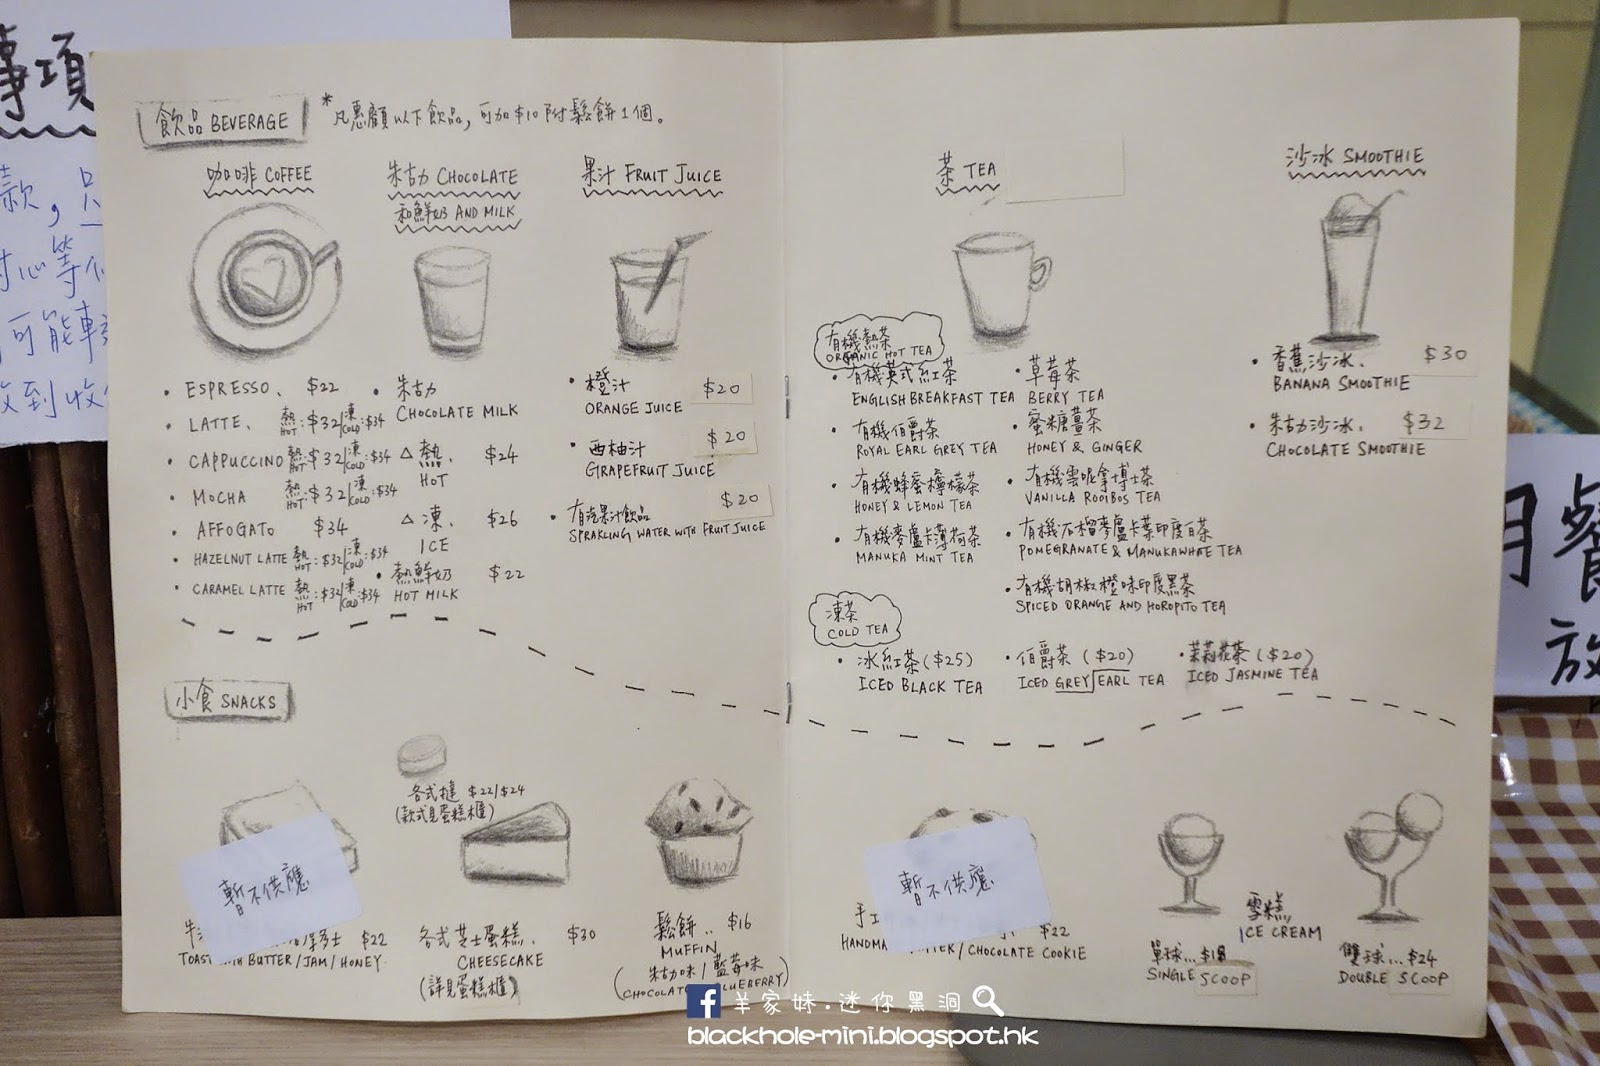 事項
飲品 BEVERAGE
*凡惠顧以下飲品,可加$10附鬆餅1個。
咖啡 COFFEE
ESPRESSO、 $22
LATTE、 熱 HOT:$32/凍 COLD:$34
CAPPUCCINO 熱 HOT:$32/凍 COLD:$34
MOCHA 熱 HOT:$32/凍 COLD:$34
AFFOGATO $34
HAZELNUT LATTE 熱 HOT:$32/凍 COLD:$34
CARAMEL LATTE 熱 HOT:$32/凍 COLD:$34
朱古力 CHOCOLATE
和鮮奶 AND MILK
朱古力
CHOCOLATE MILK
△ 熱、 $24
HOT
△ 凍、 $26
ICE
熱鮮奶 $22
HOT MILK
果汁 FRUIT JUICE
橙汁 $20
ORANGE JUICE
西柚汁 $20
GRAPEFRUIT JUICE
有汽果汁飲品 $20
SPRAKLING WATER WITH FRUIT JUICE
茶 TEA
有機熱茶
ORGANIC HOT TEA
有機英式紅茶
ENGLISH BREAKFAST TEA
有機伯爵茶
ROYAL EARL GREY TEA
有機蜂蜜檸檬茶
HONEY & LEMON TEA
有機麥盧卡薄荷茶
MANUKA MINT TEA
草莓茶
BERRY TEA
蜜糖薑茶
HONEY & GINGER
有機雲呢拿博士茶
VANILLA ROOIBOS TEA
有機石榴麥盧卡葉印度白茶
POMEGRANATE & MANUKA WHITE TEA
有機胡椒橙味印度黑茶
SPICED ORANGE AND HOROPITO TEA
凍茶
COLD TEA
冰紅茶($25)
ICED BLACK TEA
伯爵茶($20)
ICED GREY EARL TEA
茉莉花茶($20)
ICED JASMINE TEA
沙冰 SMOOTHIE
香蕉沙冰、 $30
BANANA SMOOTHIE
朱古力沙冰、 $32
CHOCOLATE SMOOTHIE
小食 SNACKS
暫不供應
多士 $22
TOAST WITH BUTTER/JAM/HONEY
各式撻 $22/$24
(款式見蛋糕櫃)
各式芝士蛋糕、 $30
CHEESECAKE
(詳見蛋糕櫃)
鬆餅.. $16
MUFFIN
(朱古力味/藍莓味
CHOCOLATE LUEBERRY)
暫不供應
手工 $22
HANDMA TTER/CHOCOLATE COOKIE
雪糕
ICE CREAM
單球...$18
SINGLE SCOOP
雙球...$24
DOUBLE SCOOP
款,只
心等
可能轉
收到收
月餐
放
羊家妹.迷你黑洞
blackhole-mini.blogspot.hk